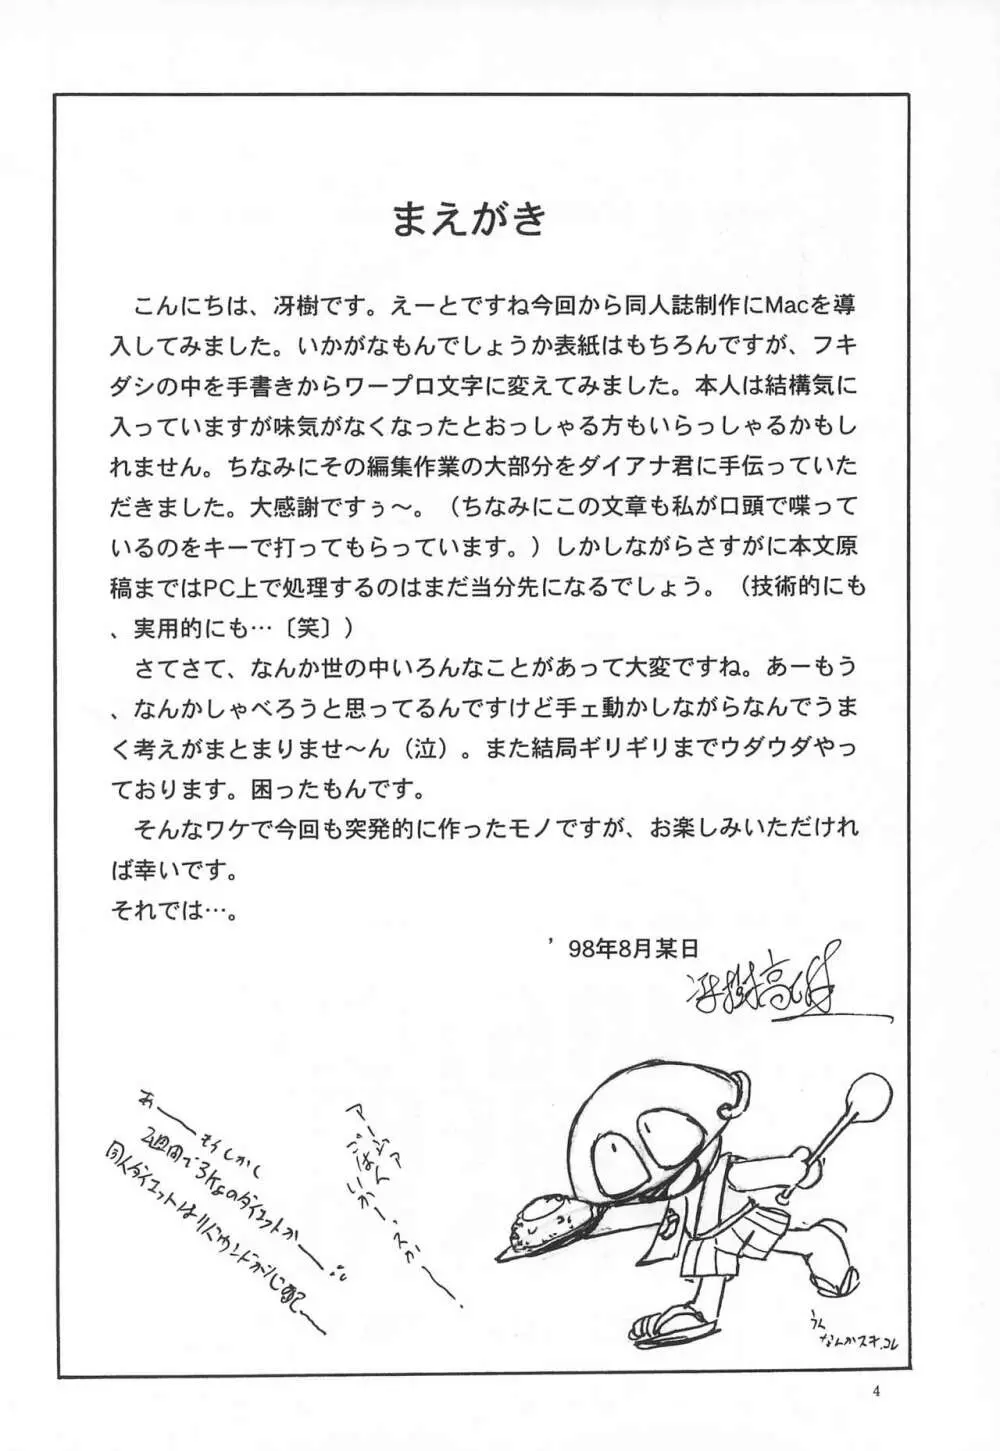 まえがき
　こんにちは、冴樹です。えーとですね今回から同人誌制作にMacを導
入してみました。いかがなもんでしょうか表紙はもちろんですが、フキ
ダシの中を手書きからワープロ文字に変えてみました。本人は結構気に
入っていますが味気がなくなったとおっしゃる方もいらっしゃるかもし
れません。ちなみにその編集作業の大部分をダイアナ君に手伝っていた
だきました。大感謝ですぅ〜。（ちなみにこの文章も私が口頭で喋って
いるのをキーで打ってもらっています。）しかしながらさすがに本文原
稿まではPC上で処理するのはまだ当分先になるでしょう。（技術的にも
、実用的にも…〔笑〕）
　さてさて、なんか世の中いろんなことがあって大変ですね。あーもう
、なんかしゃべろうと思ってるんですけど手ェ動かしながらなんでうま
く考えがまとまりませ〜ん（泣）。また結局ギリギリまでウダウダやっ
ております。困ったもんです。
　そんなワケで今回も突発的に作ったモノですが、お楽しみいただけれ
ば幸いです。
それでは…。
’98年8月某日
冴樹高雄
アージァ
ごはん
いかーっスかー。
あー
もしかし
2週間で3kgのダイエットかー
同人ダイエットはリバウンドが心配〜
うん
なんかスキ、コレ
4